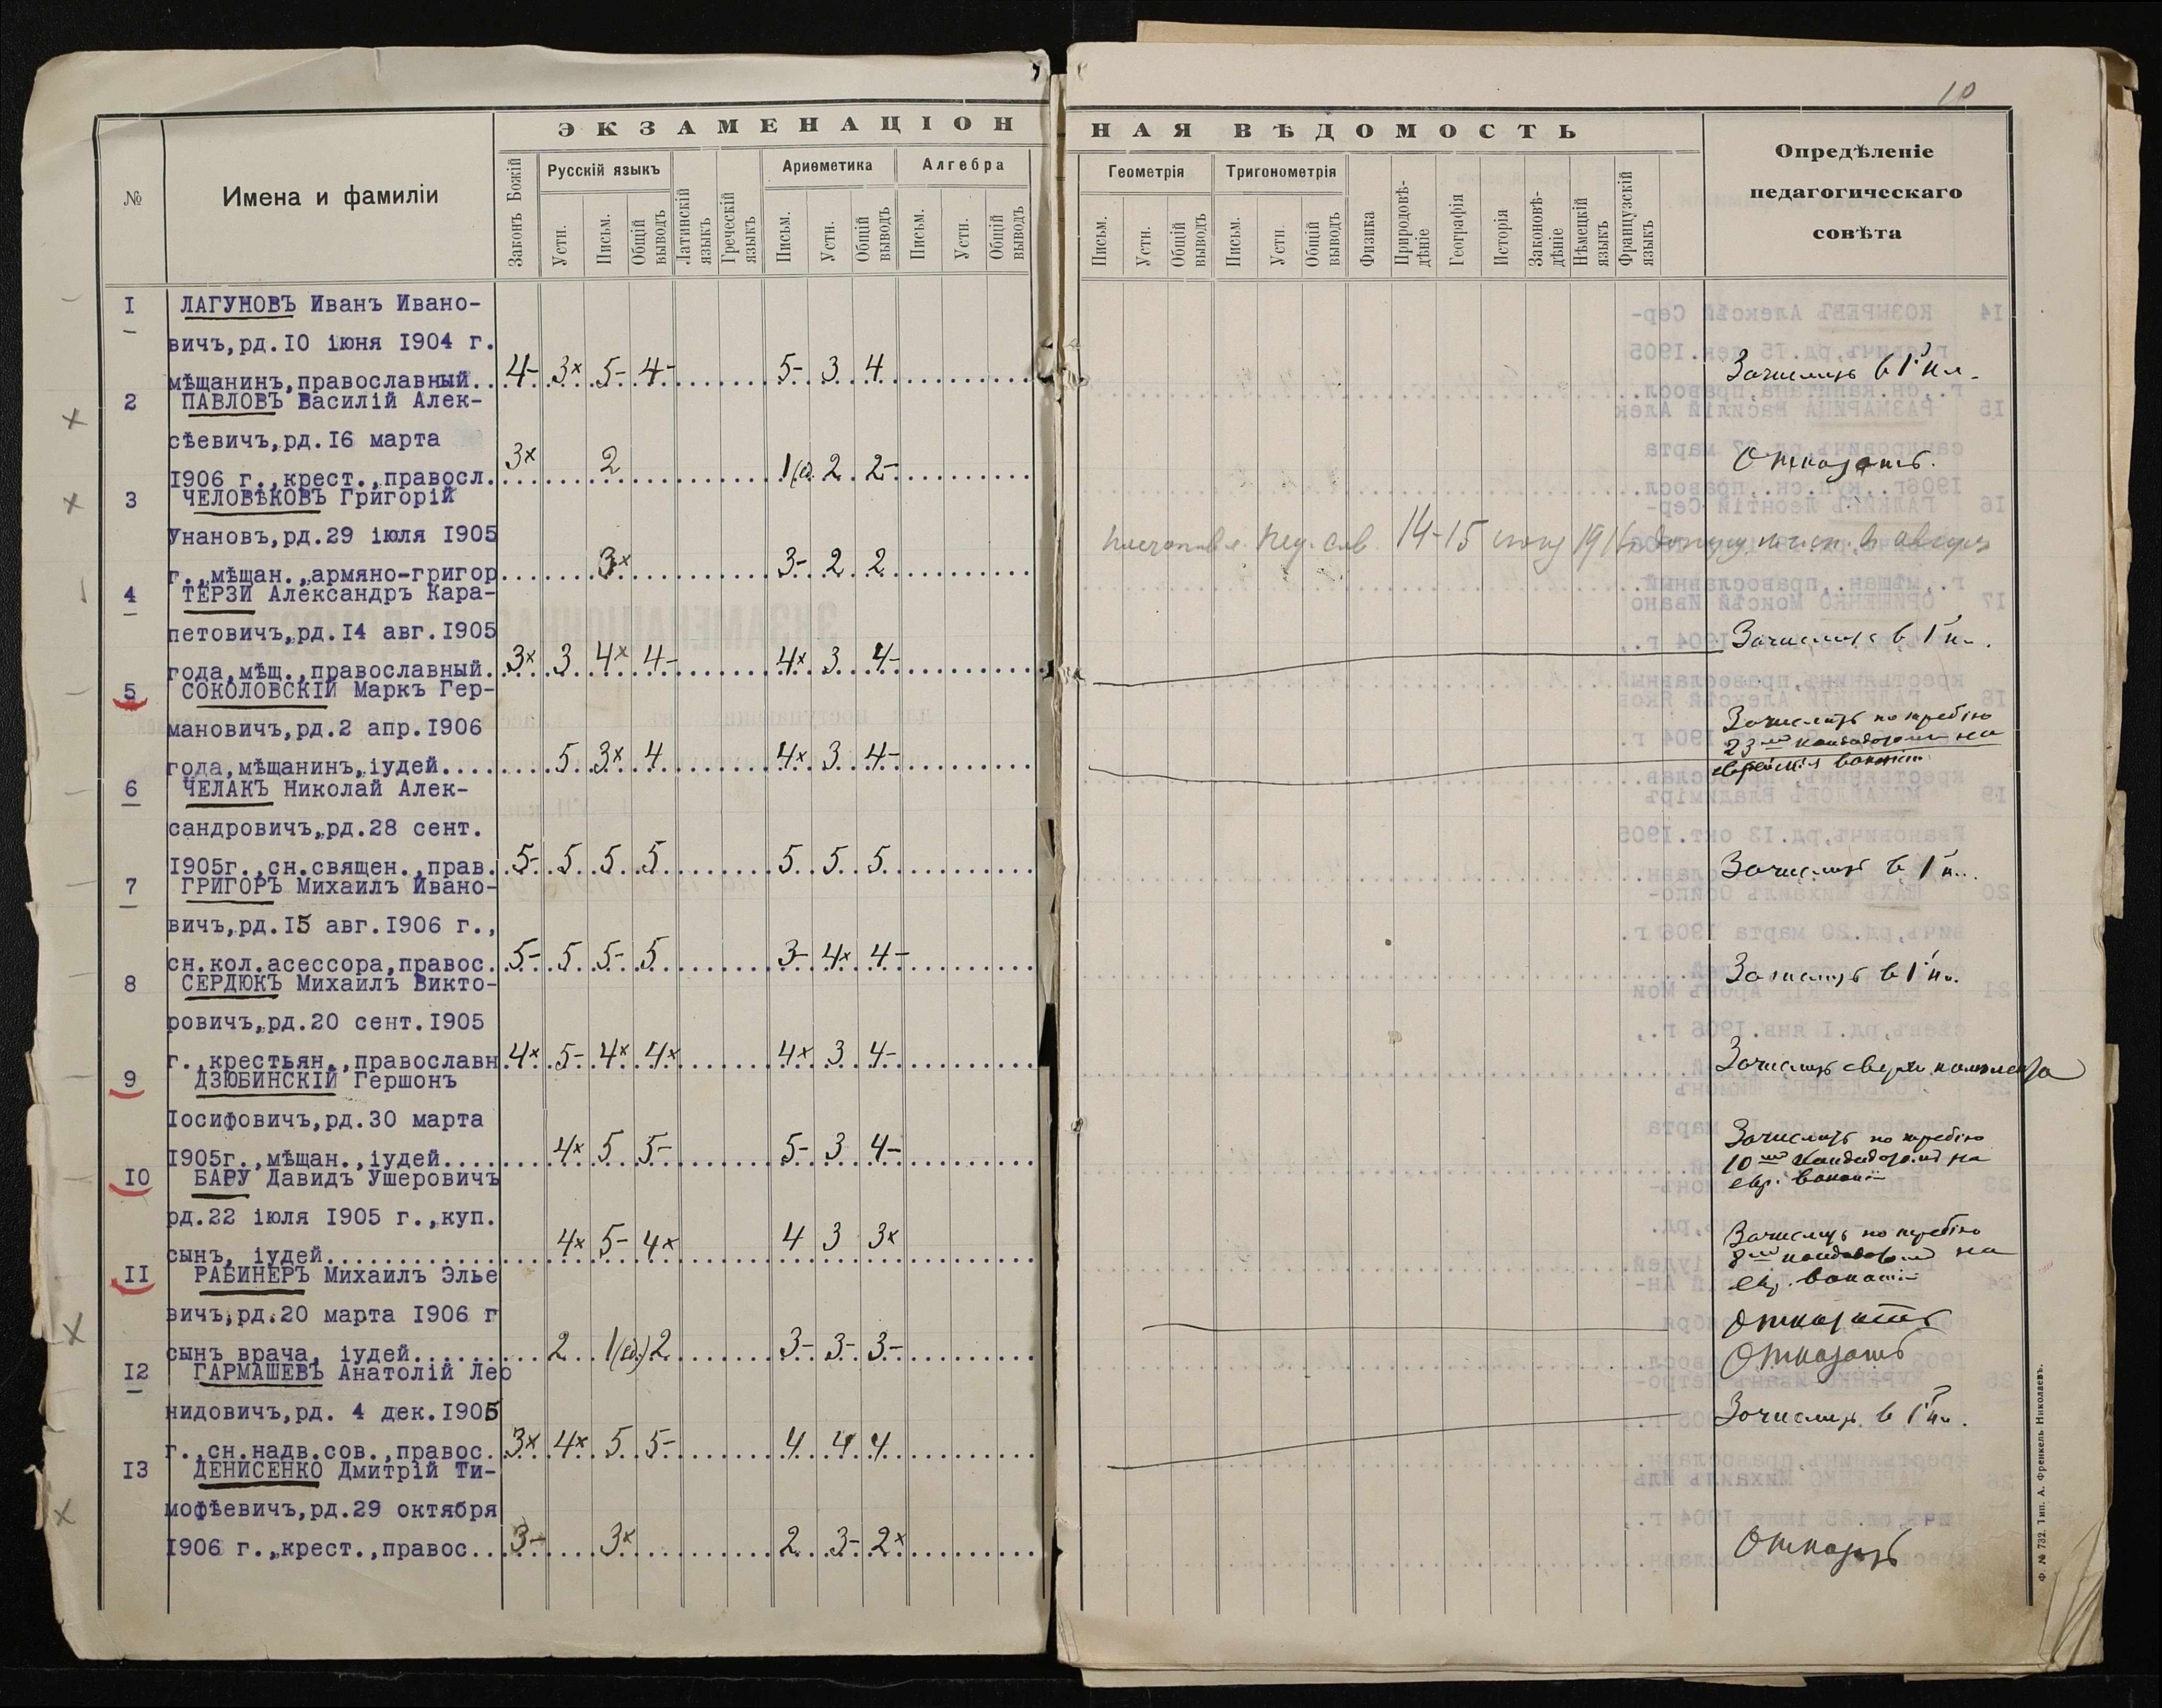 10
ЭКЗАМЕНАЦІОННАЯ ВѢДОМОСТЬ
№
Имена и фамиліи
Законъ Божій
Русскій языкъ
Устн.
Письм.
Общій выводъ
Латинскій языкъ
Греческій языкъ
Ариѳметика
Письм.
Устн.
Общій выводъ
Алгебра
Письм.
Устн.
Общій выводъ
Геометрія
Письм.
Устн.
Общій выводъ
Тригонометрія
Письм.
Устн.
Общій выводъ
Физика
Природовѣ-дѣніе
Географія
Исторія
Законовѣ-дѣніе
Нѣмецкій языкъ
Французскій языкъ
Опредѣленіе
педагогическаго
совѣта
I ЛАГУНОВЪ Иванъ Ивано-
вичъ,рд.I0 іюня I904 г.
мѣщанинъ,православный.. 4- 3x 5- 4- 5- 3 4 Зачислить в I кл.
2 ПАВЛОВЪ Василій Алек-
сѣевичъ,рд.I6 марта
I906 г.,крест.,правосл. 3x 2 1(ед. 2 2- Отказать.
3 ЧЕЛОВѢКОВЪ Григорій
Унановъ,рд.29 іюля I905
г.,мѣщан.,армяно-григор 3x 3- 2 2
пед. сов. 14-15
4 ТЕРЗИ Александръ Кара-
петовичъ,рд.I4 авг.I905
года,мѣщ.,православный. 3x 3 4x 4- 4x 3 4- Зачислить в I кл.
5 СОКОЛОВСКІЙ Маркъ Гер-
мановичъ,рд.2 апр.I906
года,мѣщанинъ,іудей.... 5 3x 4 4x 3 4- Зачислить по жребію
23мъ кандидатомъ на
еврейскія вакансіи
6 ЧЕЛАКЪ Николай Алек-
сандровичъ,рд.28 сент.
I905г.,сн.священ.,прав. 5- 5 5 5 5 5 5 Зачислить в I кл.
7 ГРИГОРЪ Михаилъ Ивано-
вичъ,рд.I5 авг.I906 г.,
сн.кол.асессора,правос. 5- 5 5- 5 3- 4x 4- Зачислить в I кл.
8 СЕРДЮКЪ Михаилъ Викто-
ровичъ,рд.20 сент.I905
г.,крестьян.,православн 4x 5- 4x 4x 4x 3 4- Зачислить сверх комплекта
9 ДЗЮБИНСКІЙ Гершонъ
Іосифовичъ,рд.30 марта
I905г.,мѣщан.,іудей.... 4x 5 5- 5- 3 4- Зачислить по жребію
10мъ кандидатомъ на
евр. вакансіи
I0 БАРУ Давидъ Ушеровичъ
рд.22 іюля I905 г.,куп.
сынъ, іудей............ 4x 5- 4x 4 3 3x Зачислить по жребію
8мъ кандидатомъ на
евр. вакансіи
II РАБИНЕРЪ Михаилъ Элье
вичъ,рд.20 марта I906 г
сынъ врача, іудей...... 2 1(ед.) 2 3- 3- 3- Отказать
Отказать
I2 ГАРМАШЕВЪ Анатолій Лео
нидовичъ,рд. 4 дек.I905
г.,сн.надв.сов.,правос. 3x 4x 5 5- 4 4 4 Зачислить в I кл.
I3 ДЕНИСЕНКО Дмитрій Ти-
мофѣевичъ,рд.29 октября
I906 г.,крест.,правос.. 3- 3x 2 3- 2x Отказать
Ф. № 732. Тип. А. Френкель Николаевъ.